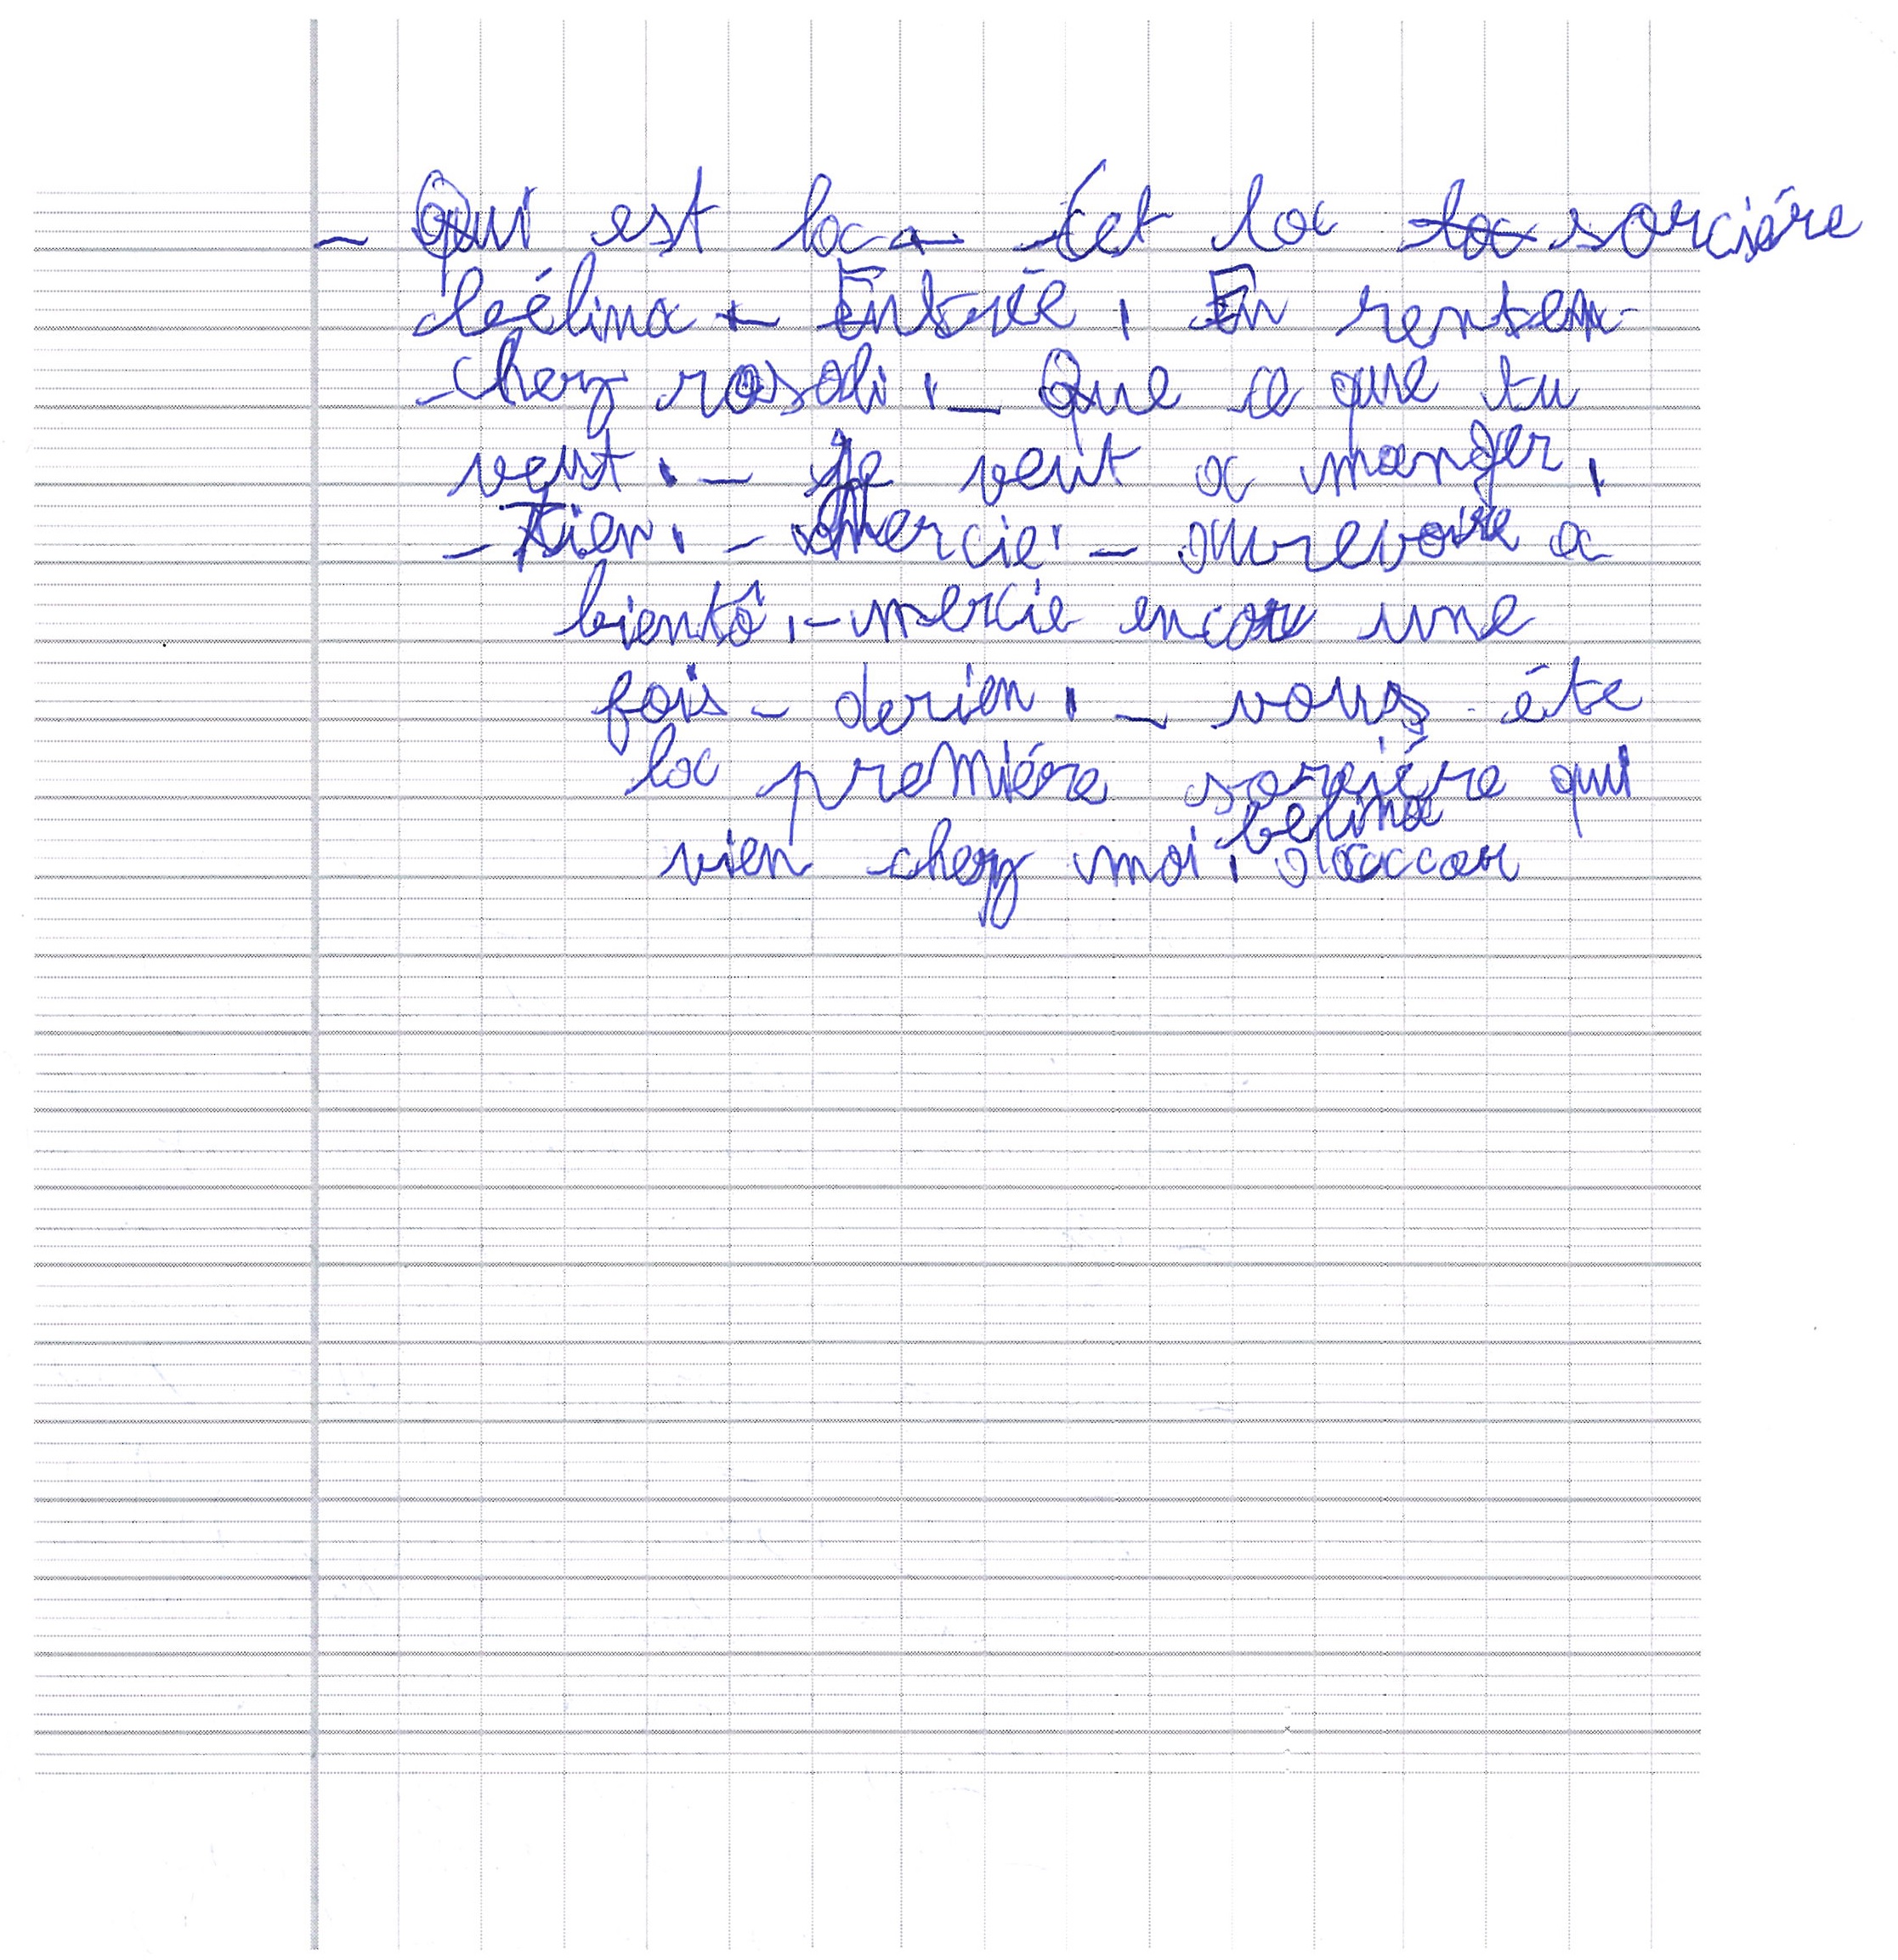 - Qui est la - - Cet la la sorciére
beélina - Entrée . En renten
chez rosali . - Que ce que tu
veut . - Je veut a manger .
- Tien . - Mercie . - aurevoire a
bientô . - mercie encore une
fois - derien . - vous éte
la premiére sorciére qui
vien chez moi . belina